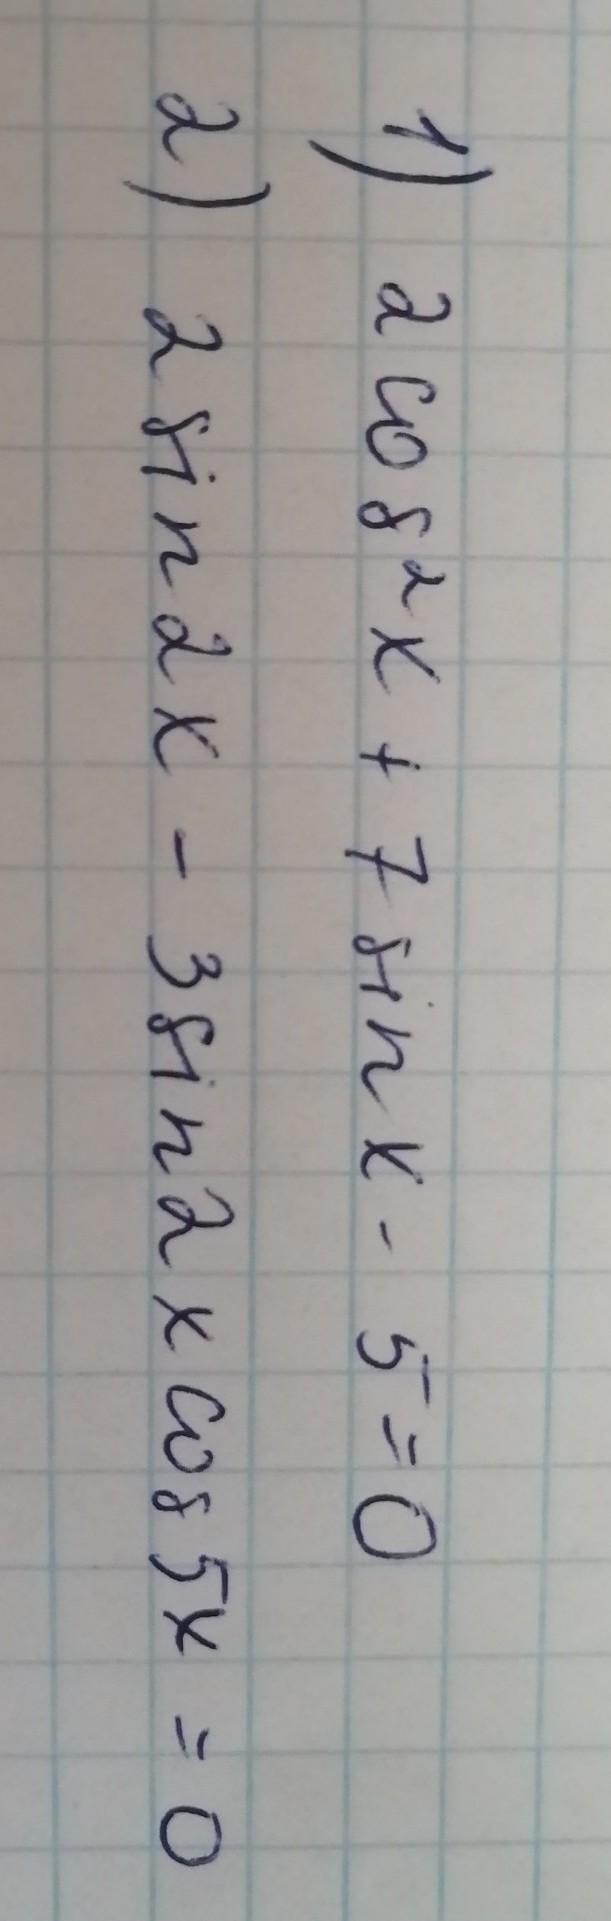 1) 2cos²x + 7sinx - 5 = 0
2) 2sin2x - 3sin2xcos5x = 0